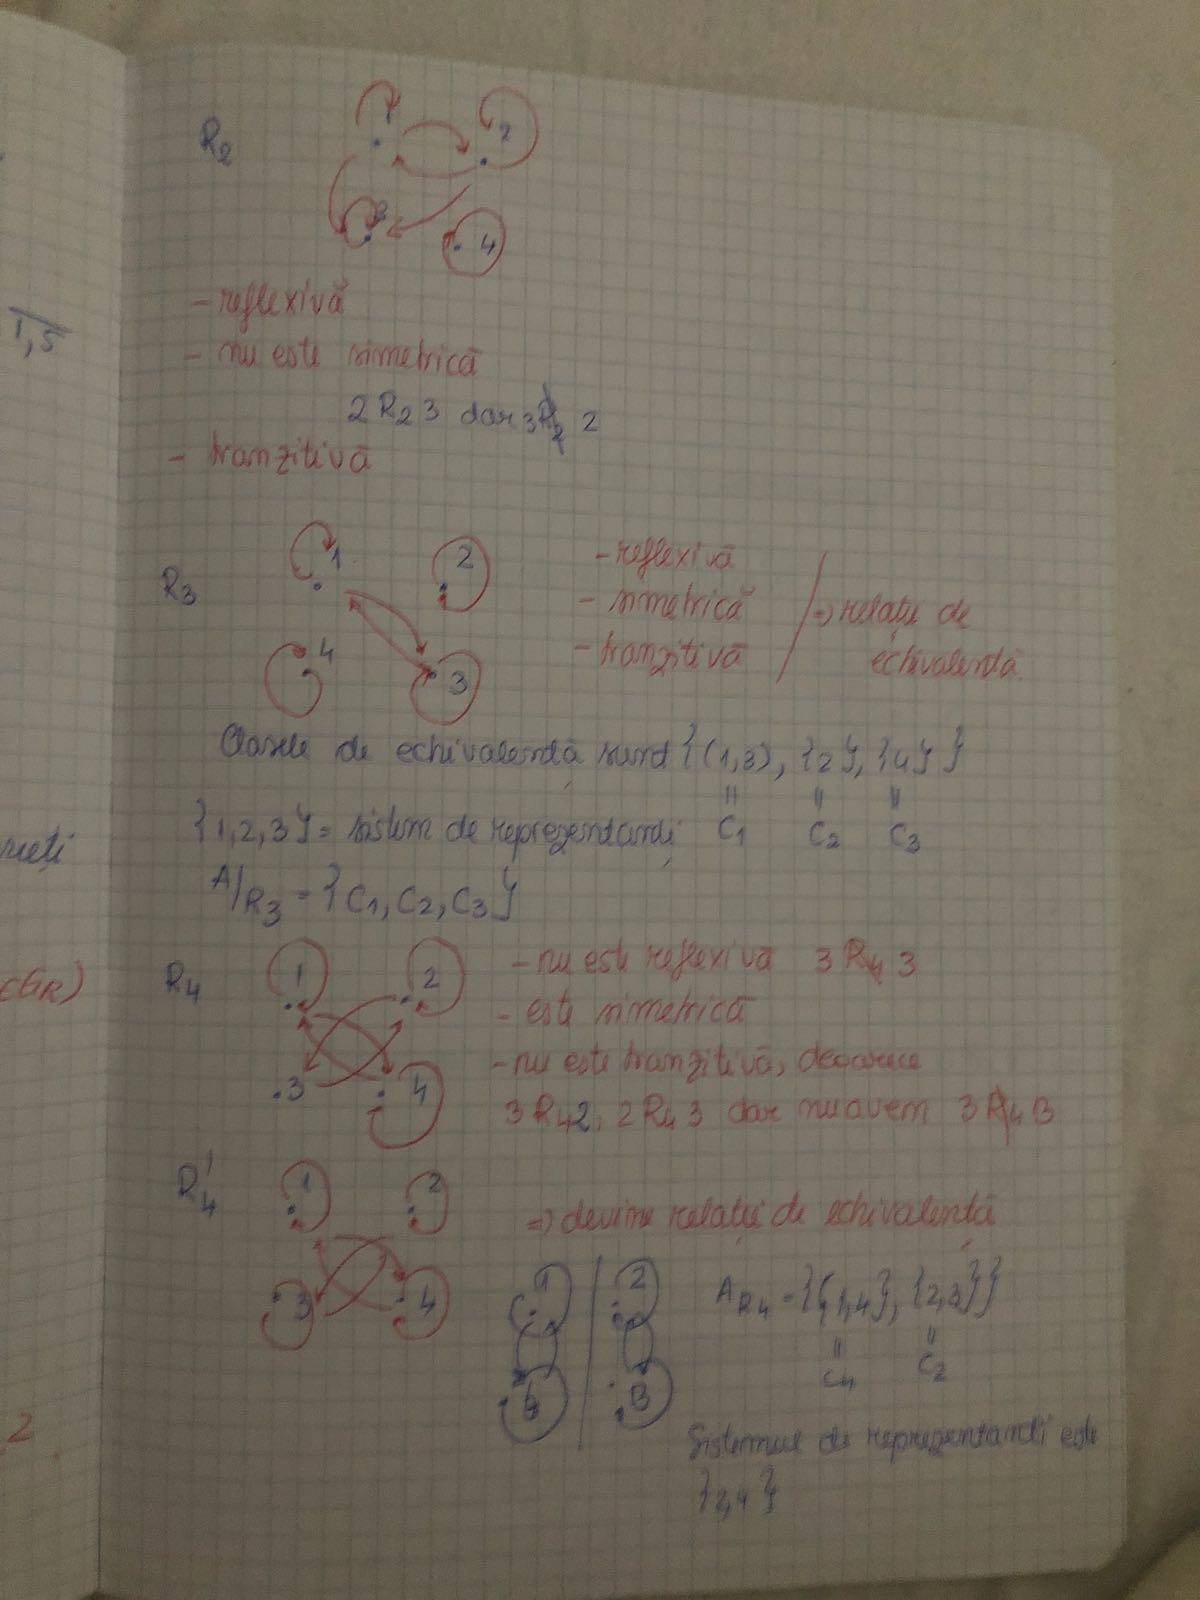 R2
1
2
3
4
- reflexivă
- nu este simetrică
2 R2 3 dar 3R̸2 2
- tranzitivă
1,5
R3
1
2
4
3
- reflexivă
- simetrică
- tranzitivă
=> relație de
echivalență.
Clasele de echivalență sunt {(1,3), {2}, {4}}
" " "
C1 C2 C3
{1,2,3} = sistem de reprezentanți
A/R3 = {C1, C2, C3}
R4
1
2
3
4
- nu este reflexivă 3 R̸4 3
- este simetrică
- nu este tranzitivă, deoarece
3 R4 2, 2 R4 3 dar nu avem 3 R̸4 3
R4'
1
2
3
4
=> devine relație de echivalență
1
2
3
A R4 = {{1,4}, {2,3}}
" "
C4 C2
Sistemul de reprezentanți este
{2,4}
2